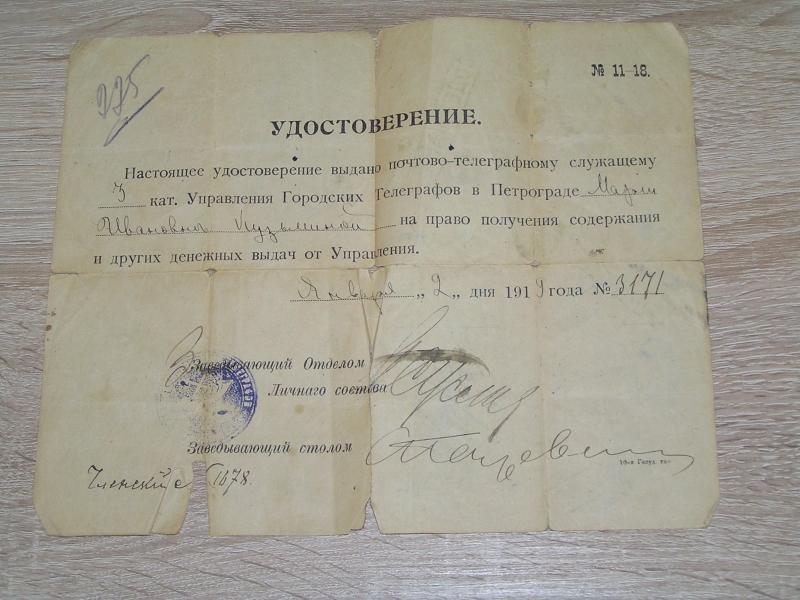 225
№ 11-18.
УДОСТОВЕРЕНИЕ.
Настоящее удостоверение выдано почтово-телеграфному служащему
3 кат. Управления Городских Телеграфов в Петрограде Марии
Ивановне Кузьминой на право получения содержания
и других денежных выдач от Управления.
Января „2„ дня 1919 года № 3171
Заведывающий Отделом
Личнаго состава
Заведывающий столом
Членский 1678.